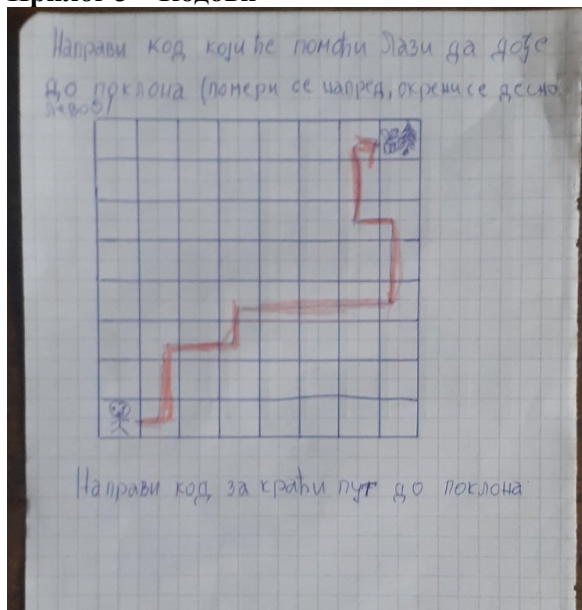 Направи код који ће помоћи Лази да дође
до поклона (помери се напред, окрени се десно
лево)
Направи код за краћи пут до поклона